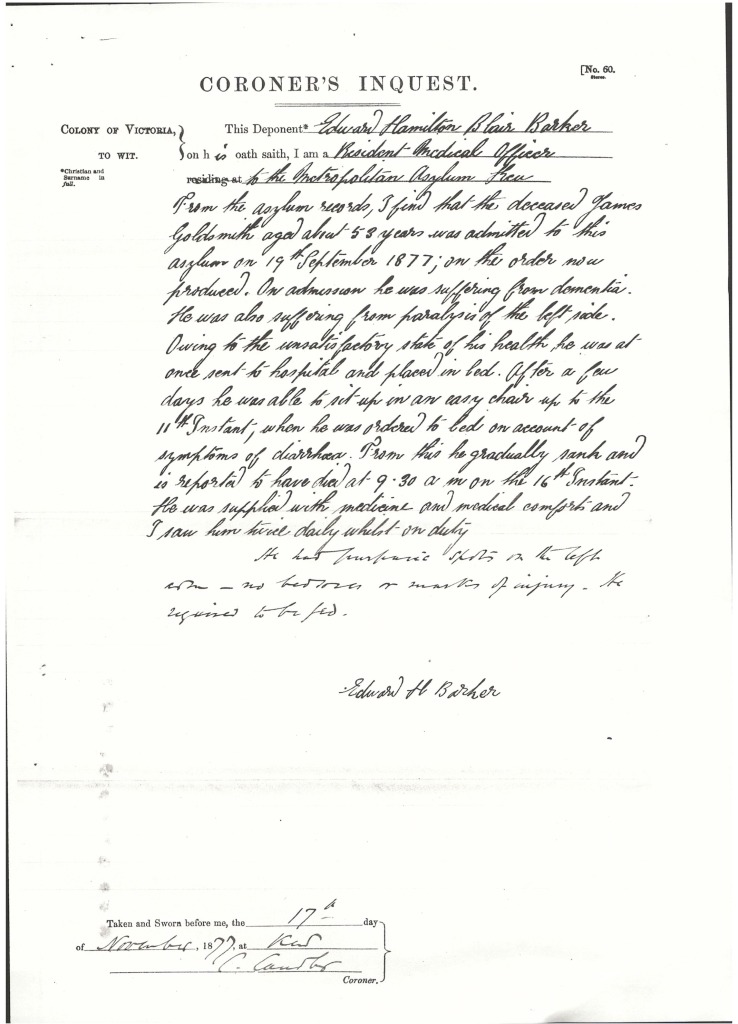 [No. 60.
CORONER'S INQUEST.
COLONY OF VICTORIA,
TO WIT.
*Christian and
Surname in
full.
This Deponent* Edward Hamilton Blair Barker
on his oath saith, I am a Resident Medical Officer
residing at to the Metropolitan Asylum Kew
From the asylum records, I find that the deceased James
Goldsmith aged about 53 years was admitted to this
asylum on 19th September 1877; on the order now
produced. On admission he was suffering from dementia.
He was also suffering from paralysis of the left side.
Owing to the unsatisfactory state of his health, he was at
once sent to hospital and placed in bed. After a few
days he was able to sit up in an easy chair up to the
11th Instant, when he was ordered to bed on account of
symptoms of diarrhœa. From this he gradually sank and
is reported to have died at 9.30 a m on the 16th Instant.
He was supplied with medicine and medical comforts and
I saw him twice daily whilst on duty
He had purpuric spots on the left
arm – no bedsores or marks of injury. He
required to be fed.
Edward H Barker
Taken and Sworn before me, the 17th day
of November, 1877, at Kew
C. Candler
Coroner.